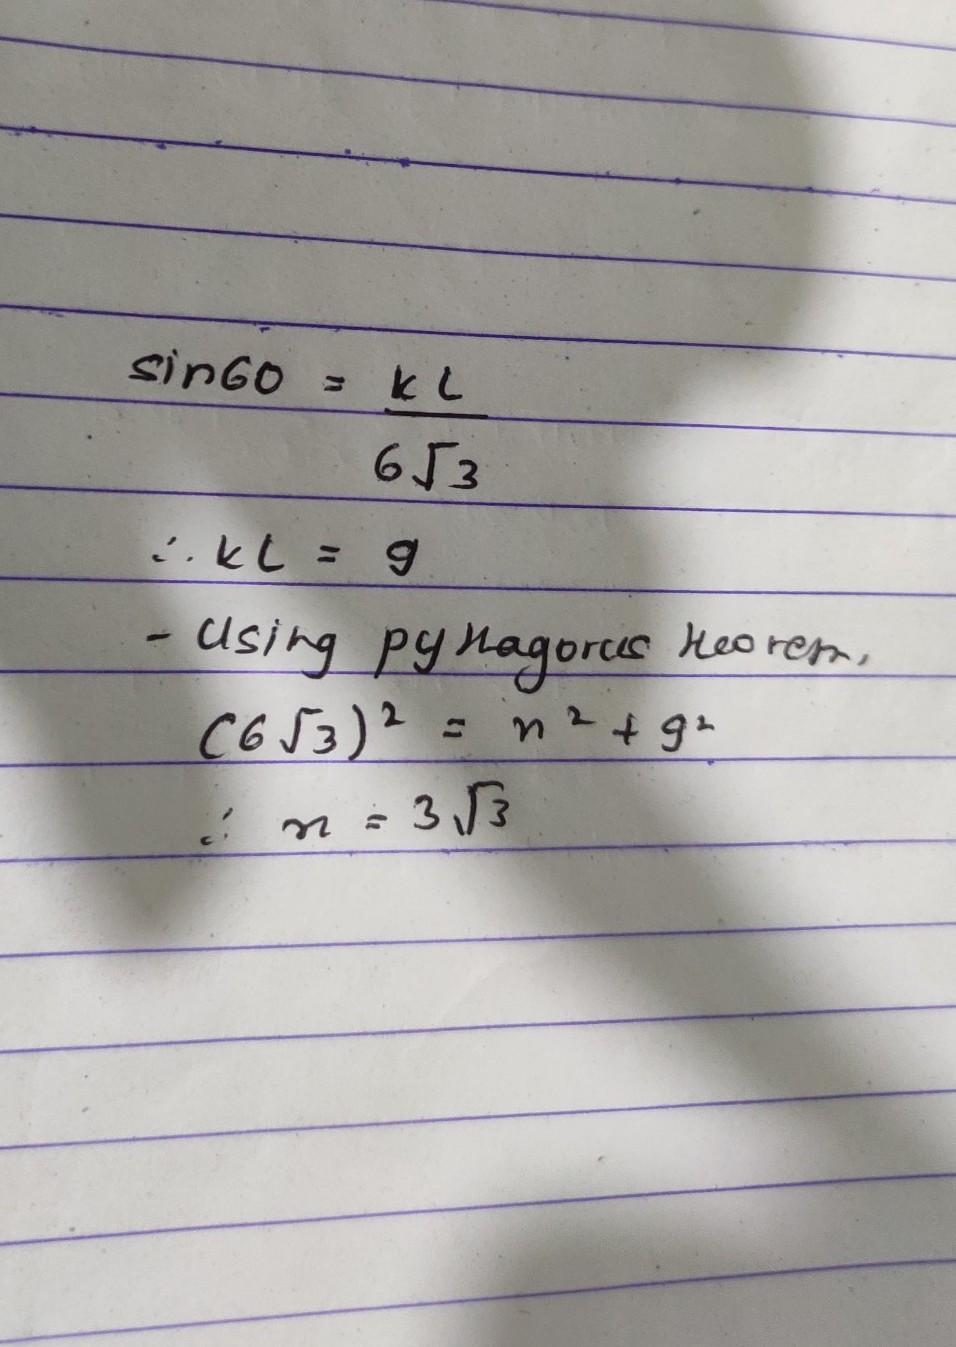 sin60 = KL
6√3
∴ KL = 9
- Using pythagorus theorem,
(6√3)² = x² + 9²
∴ x = 3√3